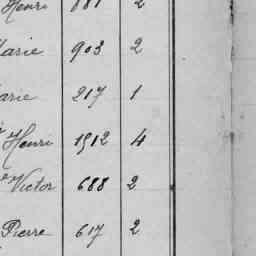 Henri 881 2
Marie 903 2
Marie 217 1
Henri 1512 4
Victor 688 2
Pierre 617 2